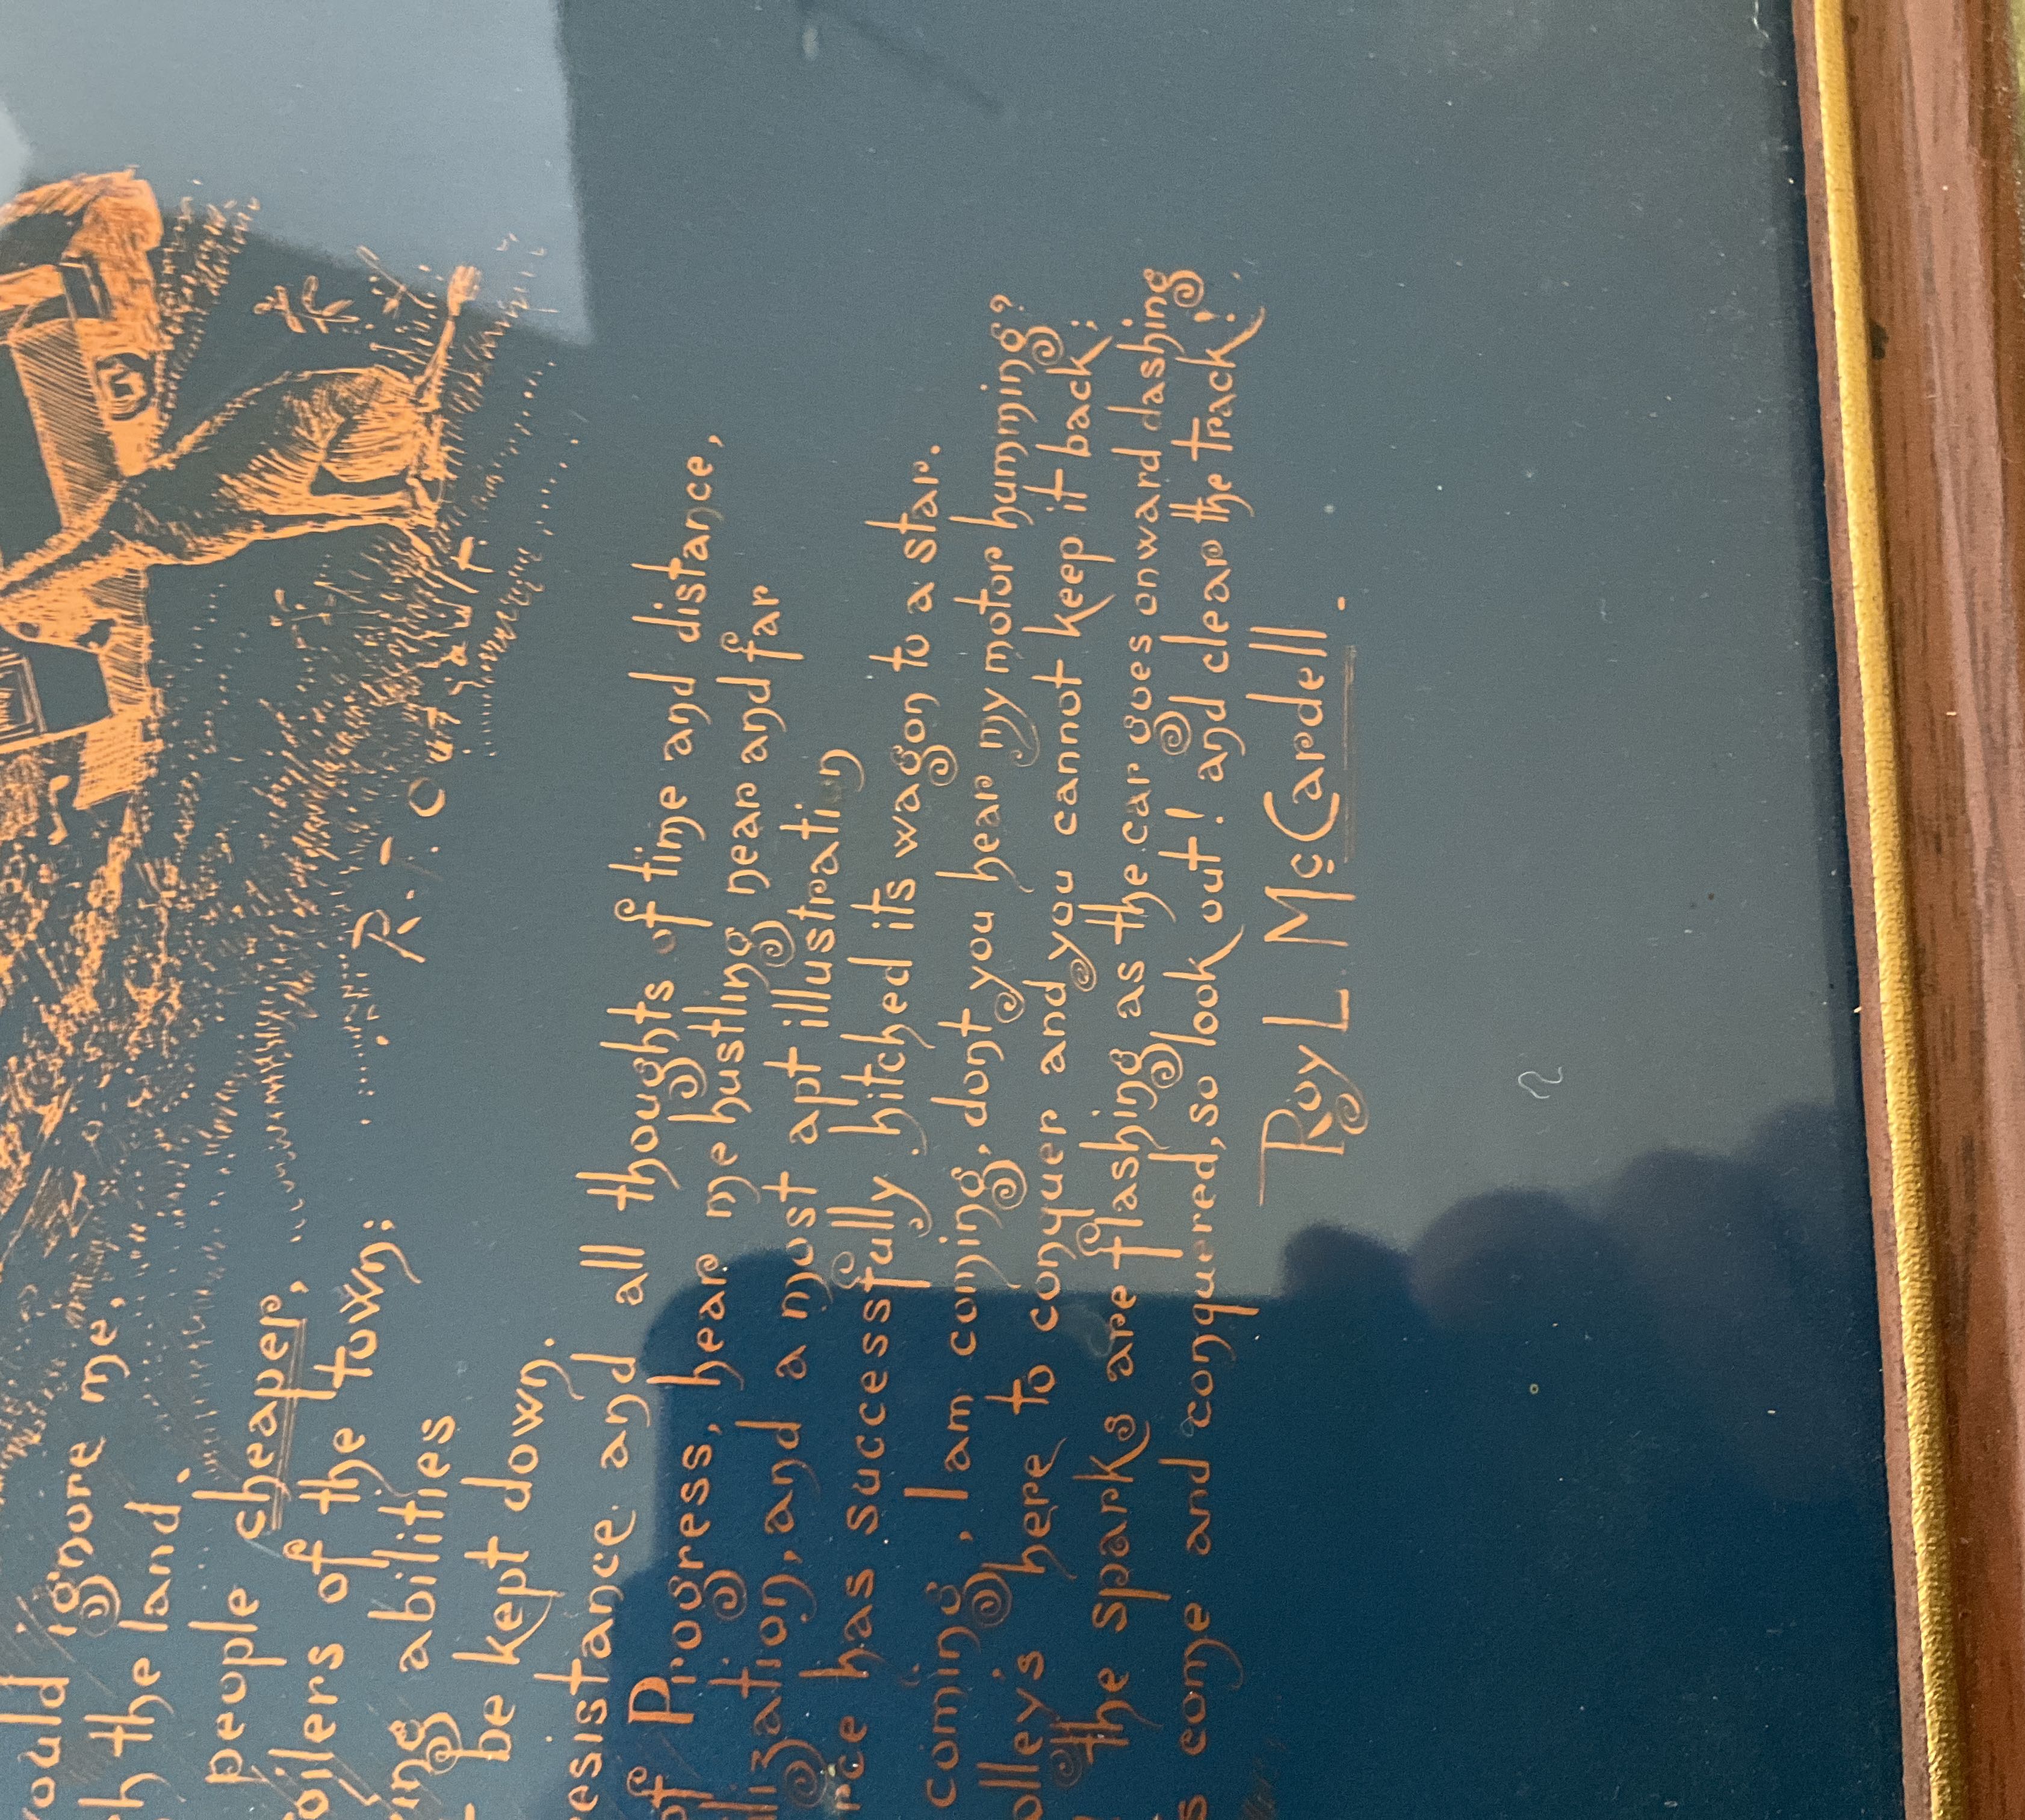 ould ignore me,
h the land.
people cheaper,
oilers of the town;
ing abilities
be kept down.
R. F. Outcault
esistance and all thoughts of time and distance,
of Progress, hear me hustling near and far
lization, and a most apt illustration
nce has successfully hitched its wagon to a star.
coming, I am coming, dont you hear my motor humming?
olleys here to conquer and you cannot keep it back;
the sparks are flashing as the car goes onward dashing
s come and conquered, so look out! and clear the track!
Roy L McCardell.